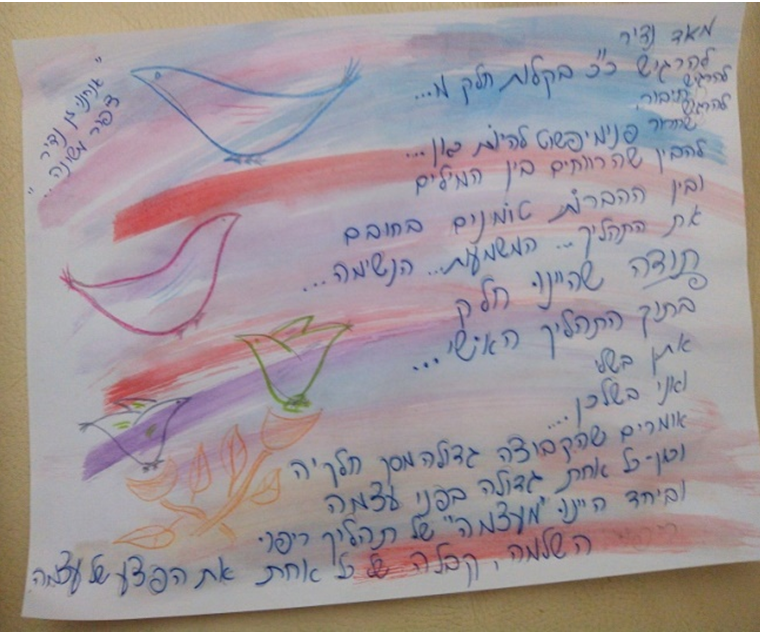 מאד נדיר
להרגיש כ"כ בקלות חלק מ...
להרגיש
חיבור.
להרגיש
שחרור
פנימי פשוט להיות כאן...
להבין שהרווחים בין המילים
ובין ההברות טומנים בחובם
את התהליך... המשמעות... הנשימה...
תודה שהיינו חלק
בתוך התהליך האישי...
אתן בשלי
ואני בשלכן...
אומרים שהקבוצה גדולה מסך חלקיה
וכאן-כל אחת גדולה בפני עצמה
וביחד היינו "מעצמה" של תהליך ריפוי
השלמה, קבלה של כל אחת את הפצע של עצמה.
"אנחנו זן נדיר
צפור משונה..."